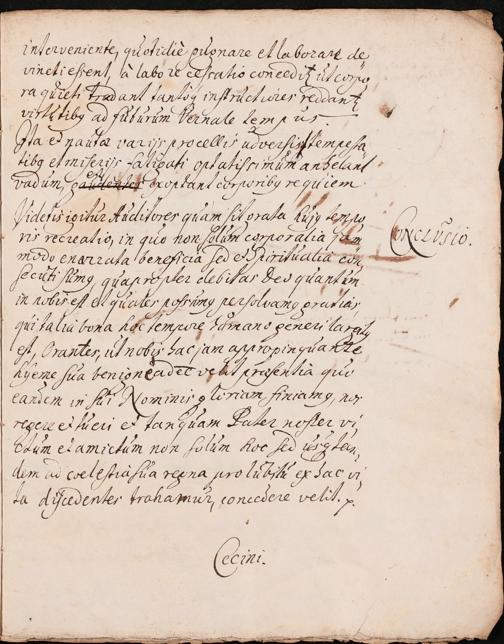 interveniente, quotidiè pugnare et laborare de
vincti essent, à labore cessatio concedit ut corpo,
ra quieti tradant tantoq instructiores reddant
virtutibq ad futurum Vernale tempus.
Ita et nautæ varijs procellis adversis tempesta
tibq et miserijs fatigati optatissimum anhelant
vadum, exoptant corporibq requiem.
Videtis igitur Auditores quam sit grata hujq tempo
ris recreatio, in quo non solum corporalia jam
modo enarrata beneficia sed et Spiritualia con
secuti simq, quapropter debitas Deo quantum
in nobis est et quales possumq persolvamq gratias,
qui talia bona hoc tempore humano generi largitq
est, Orantes, ut nobis hac jam appropinquante
hyeme sua benigne adesse velit præsentia quo
eandem in sui Nominis gloriam finiamq, nos
regere et tueri et tanquam Pater noster vi
ctum et amictum non solum hoc sed
dem ad coelestia sua regna pro lubitu ex hac vi
ta discedentes trahamur, concedere velit.
Conclusio.
Cecini.